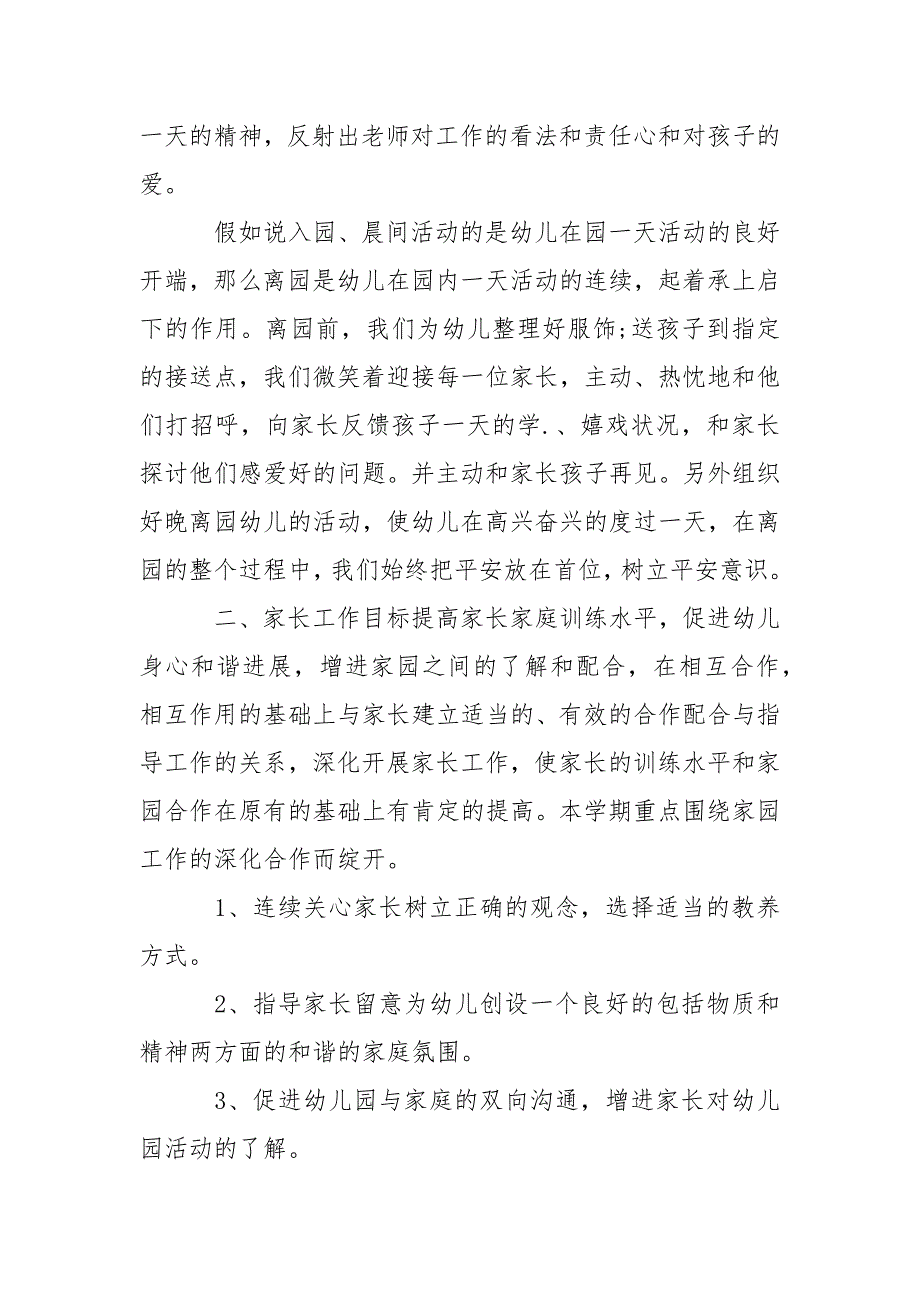 一天的精神，反射出老师对工作的看法和责任心和对孩子的
爱。
假如说入园、晨间活动的是幼儿在园一天活动的良好
开端，那么离园是幼儿在园内一天活动的连续，起着承上启
下的作用。离园前，我们为幼儿整理好服饰;送孩子到指定
的接送点，我们微笑着迎接每一位家长，主动、热忱地和他
们打招呼，向家长反馈孩子一天的学.、嬉戏状况，和家长
探讨他们感爱好的问题。并主动和家长孩子再见。另外组织
好晚离园幼儿的活动，使幼儿在高兴奋兴的度过一天，在离
园的整个过程中，我们始终把平安放在首位，树立平安意识。
二、家长工作目标提高家长家庭训练水平，促进幼儿
身心和谐进展，增进家园之间的了解和配合，在相互合作，
相互作用的基础上与家长建立适当的、有效的合作配合与指
导工作的关系，深化开展家长工作，使家长的训练水平和家
园合作在原有的基础上有肯定的提高。本学期重点围绕家园
工作的深化合作而绽开。
1、连续关心家长树立正确的观念，选择适当的教养
方式。
2、指导家长留意为幼儿创设一个良好的包括物质和
精神两方面的和谐的家庭氛围。
3、促进幼儿园与家庭的双向沟通，增进家长对幼儿
园活动的了解。